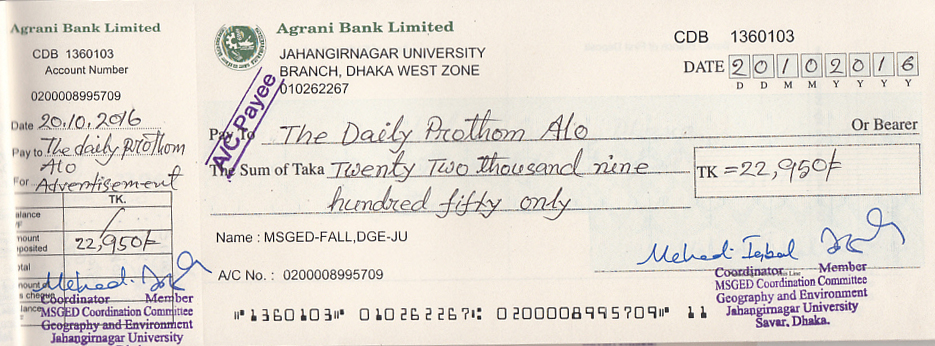 Agrani Bank Limited
CDB 1360103
Account Number
0200008995709
Date 20.10.2016
Pay to The daily prothom
Alo
For Advertisement
TK.
alance
/F
mount
posited 22,950/-
otal
mount of
s cheque
lance
Mehedi Iqbal
Coordinator Member
MSGED Coordination Committee
Geography and Environment
Jahangirnagar University
Agrani Bank Limited
JAHANGIRNAGAR UNIVERSITY
BRANCH, DHAKA WEST ZONE
010262267
CDB 1360103
DATE 20102016
D D M M Y Y Y Y
A/C Payee
Pay To The Daily Prothom Alo Or Bearer
The Sum of Taka Twenty Two thousand nine
hundred fifty only
TK =22,950/-
Name : MSGED-FALL,DGE-JU
A/C No. : 0200008995709
Mehedi Iqbal
Coordinator Member
MSGED Coordination Committee
Geography and Environment
Jahangirnagar University
Savar, Dhaka.
⑈1360103⑈ 010262267⑆ 0200008995709⑈ 11